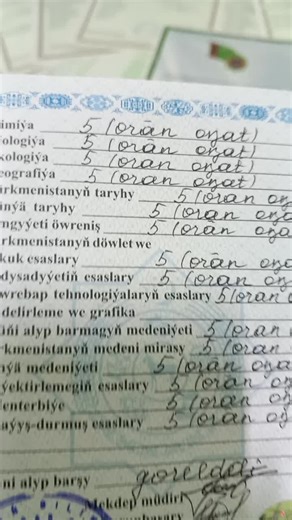 imiýa 5 (orän oňat)
ologiýa 5 (orän oňat)
kologiýa 5 (orän oňat)
eografiýa 5 (orän oňat)
ürkmenistanyň taryhy 5 (orän oň
ünýä taryhy 5 (orän oňa
mgyýeti öwreniş 5 (orän oňa
rkmenistanyň döwlet we
kuk esaslary 5 (orän oňa
dysadyýetiň esaslary 5 (orän oňa
wrebap tehnologiýalaryň esaslary 5 (orän o
delirleme we grafika
äni alyp barmagyň medeniýeti 5 (orän
rkmenistanyň medeni mirasy 5 (orän
nýä medeniýeti 5 (orän oňa
ýektirlemegiň esaslary 5 (orän oň
enterbiýe 5 (orän oň
aýyş-durmuş esaslary 5 (orän oňat
ni alyp barşy göreldeli
Mekdep müdiri